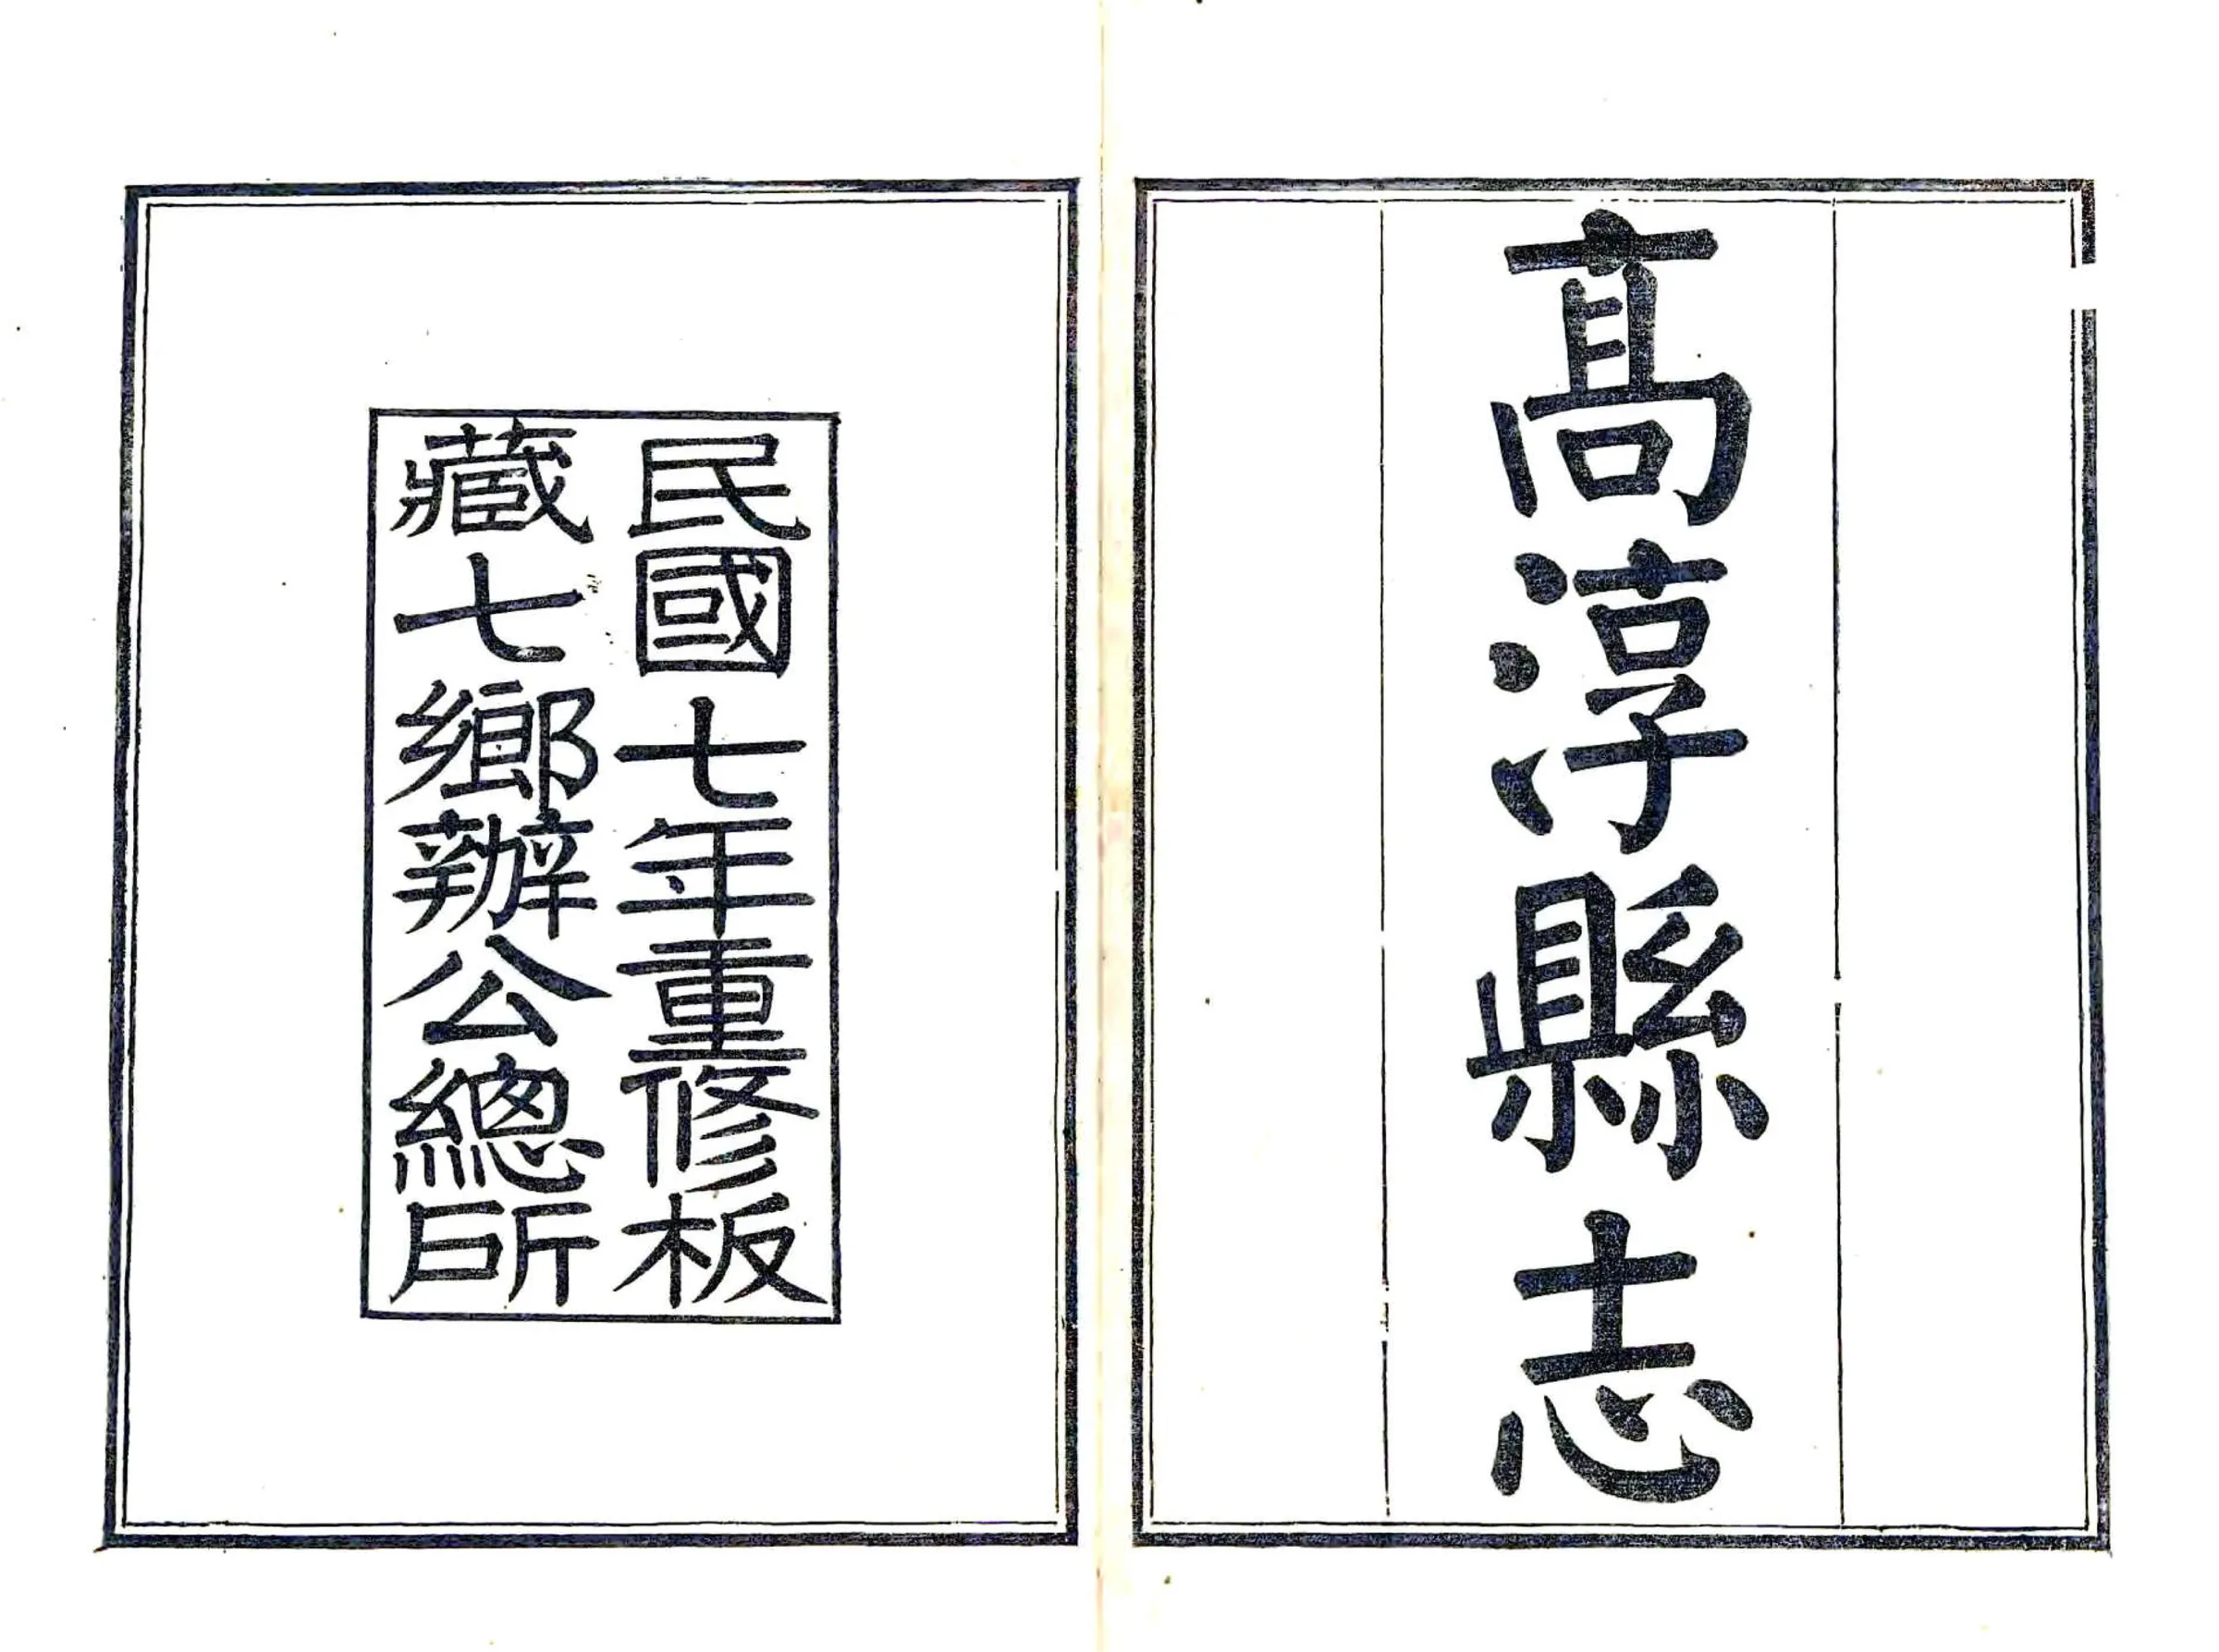 髙淳縣志
民國七年重修板
藏七鄉辦公總所